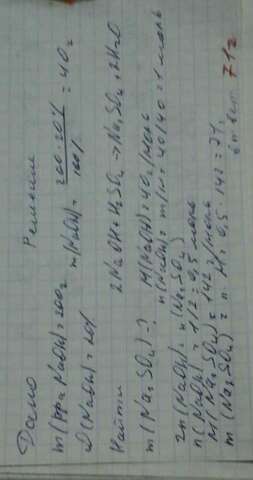 Дано
Решение
m(р-ра NaOH)=200г
m(NaOH)= 200·20% / 100% = 40г
ω(NaOH)=20%
Найти
2NaOH+H2SO4→Na2SO4+2H2O
m(Na2SO4)-?
M(NaOH)=40г/моль
n(NaOH)=m/M=40/40=1 моль
2n(NaOH)=n(Na2SO4)
n(NaOH)=1/2=0,5 моль
M(Na2SO4)=142г/моль
m(Na2SO4)=n·M=0,5·142=71г
ответ 71г